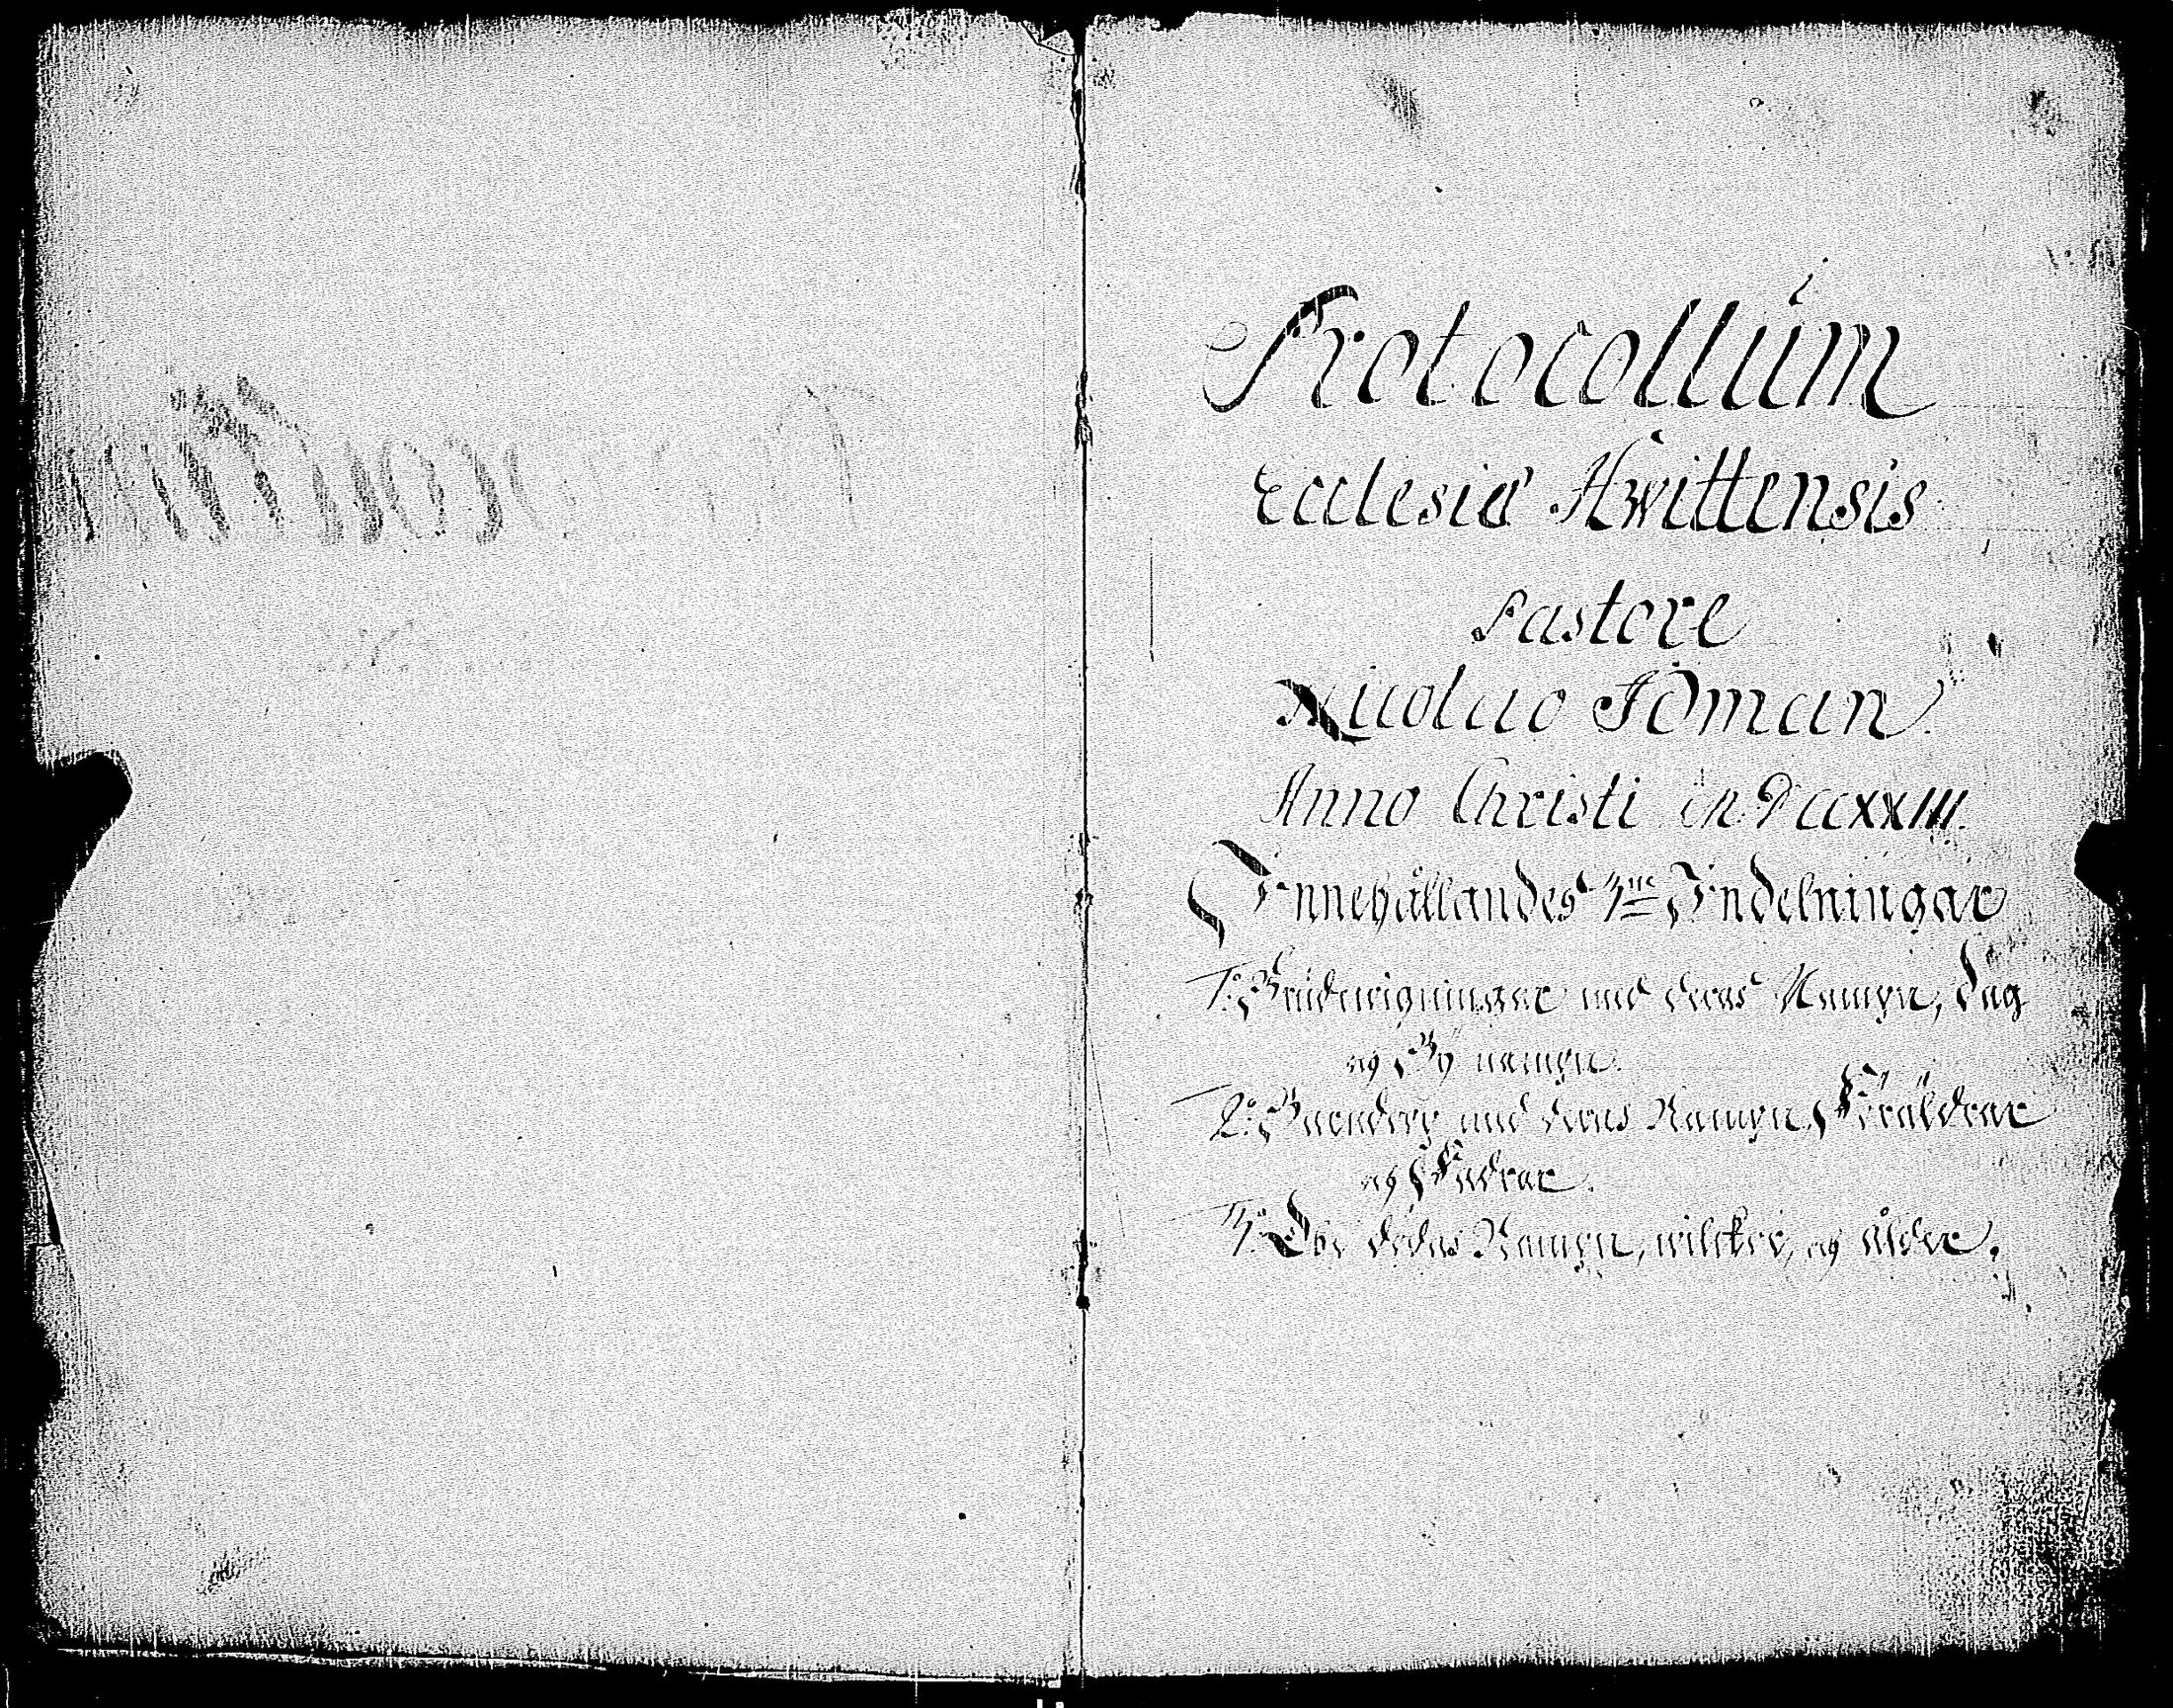 Protocollum
Ecclesiæ Hwittensis
Pastore
Nicolao Homan.
Anno Christi MDCCXXIII.
Innehållandes 3ne Indelningar
1:o Brudwigningar med deras Nampn, dag
og By nampn.
2:o Barndop med deras Nampn, Föräldrar
og Fadrar.
3:o De dödas Nampn, wilckor, og ålder.